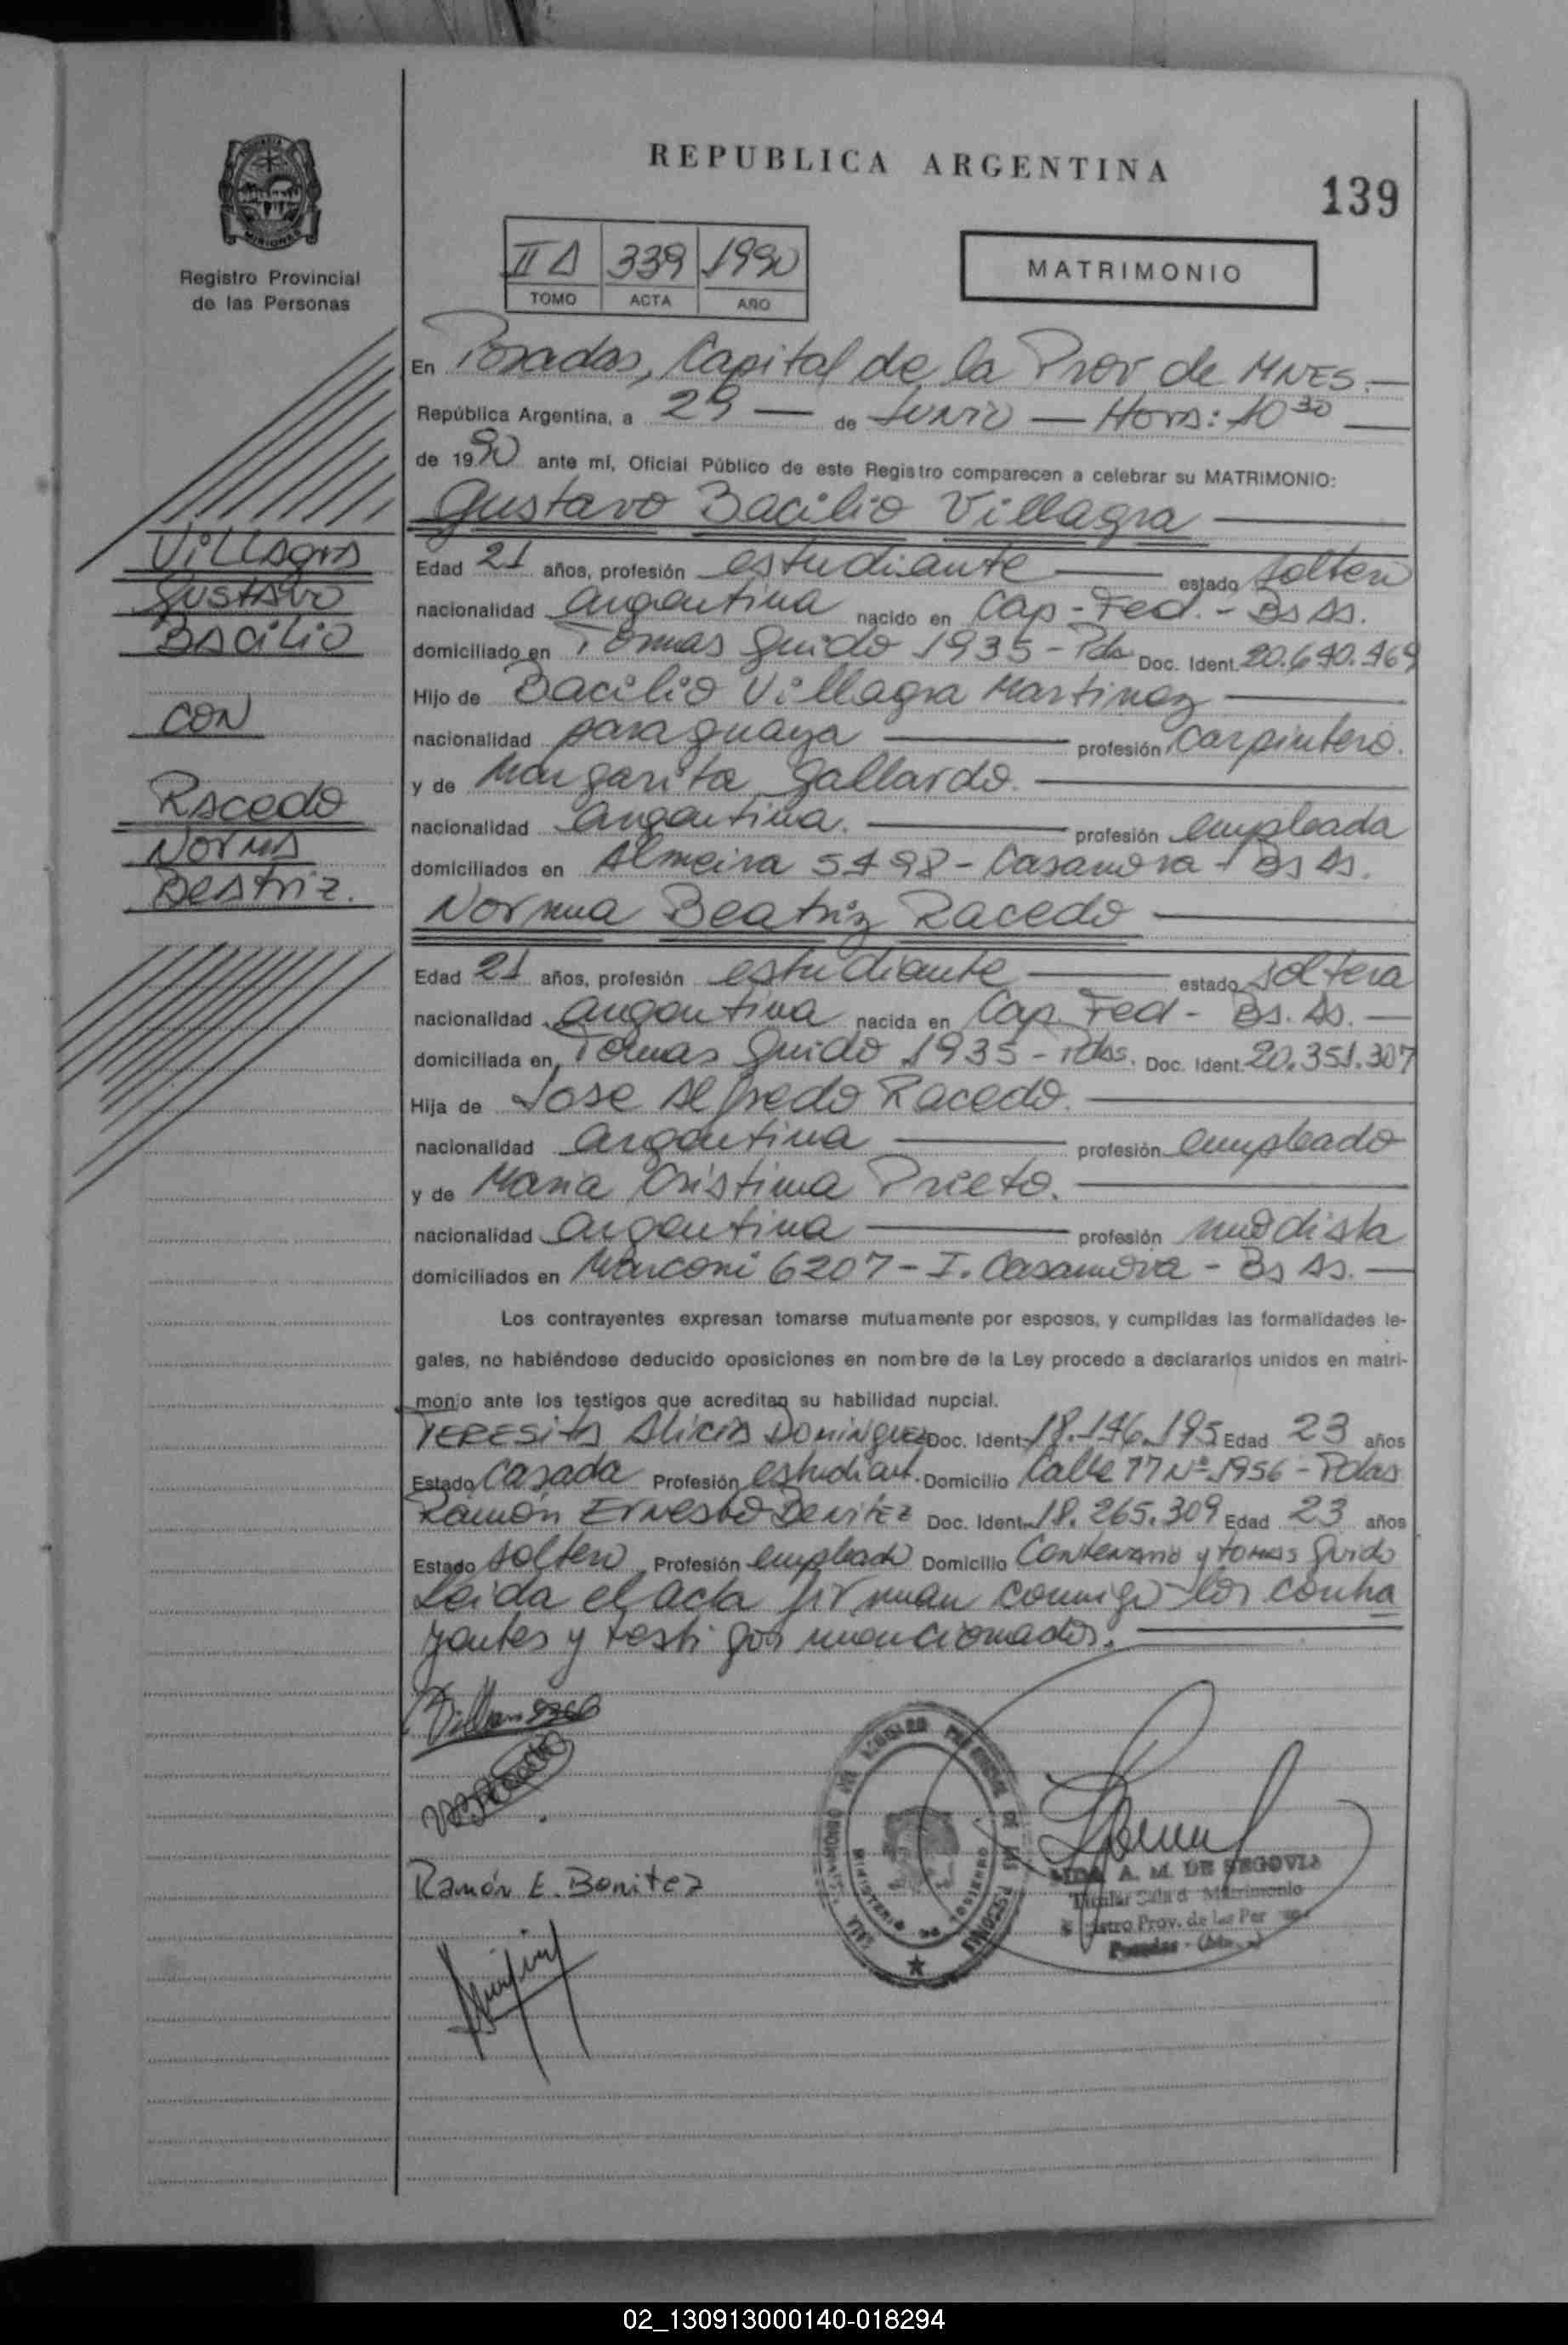 REPUBLICA ARGENTINA
139
Registro Provincial
de las Personas
II A 339 1990
TOMO ACTA AÑO
MATRIMONIO
En Posadas, Capital de la Prov de MNES.
República Argentina, a 29 — de Junio — Hora: 10 30
de 1990 ante mí, Oficial Público de este Registro comparecen a celebrar su MATRIMONIO:
Gustavo Bacilio Villagra
Edad 21 años, profesión estudiante estado soltero
nacionalidad argentina nacido en Cap - Fed. - Bs As.
domiciliado en Tomas Guido 1935 - Pdas Doc. Ident. 20.640.469
Hijo de Bacilio Villagra Martinez
nacionalidad paraguaya profesión Carpintero.
y de Margarita Gallardo.
nacionalidad argentina. profesión empleada
domiciliados en Almeira 5498 - Casanova - Bs As.
Norma Beatriz Racedo
Edad 21 años, profesión estudiante estado soltera
nacionalidad argentina nacida en Cap. Fed - Bs. As.
domiciliada en Tomas Guido 1935 - Pdas. Doc. Ident. 20.351.307
Hija de Jose Alfredo Racedo.
nacionalidad argentina profesión empleado
y de Maria Cristina Prieto.
nacionalidad argentina profesión modista
domiciliados en Marconi 6207 - I. Casanova - Bs As.
Los contrayentes expresan tomarse mutuamente por esposos, y cumplidas las formalidades le-
gales, no habiéndose deducido oposiciones en nombre de la Ley procedo a declararlos unidos en matri-
monio ante los testigos que acreditan su habilidad nupcial.
TERESITA Alicia Dominguez Doc. Ident. 18.146.195 Edad 23 años
Estado Casada Profesión estudiant. Domicilio Calle 77 Nº 1956 - Pdas
Ramón Ernesto Benitez Doc. Ident. 18.265.309 Edad 23 años
Estado soltero Profesión empleado Domicilio Centenario y tomas Guido
Leida el acta firman conmigo los contra
yentes y testigos mencionados.
Villagra
Gustavo
Bacilio
CON
Racedo
Norma
Beatriz.
Ramón E. Benitez
A. M. DE SEGOVIA
Titular Sala d Matrimonio
Prov. de Las Per
Posadas
02_130913000140-018294